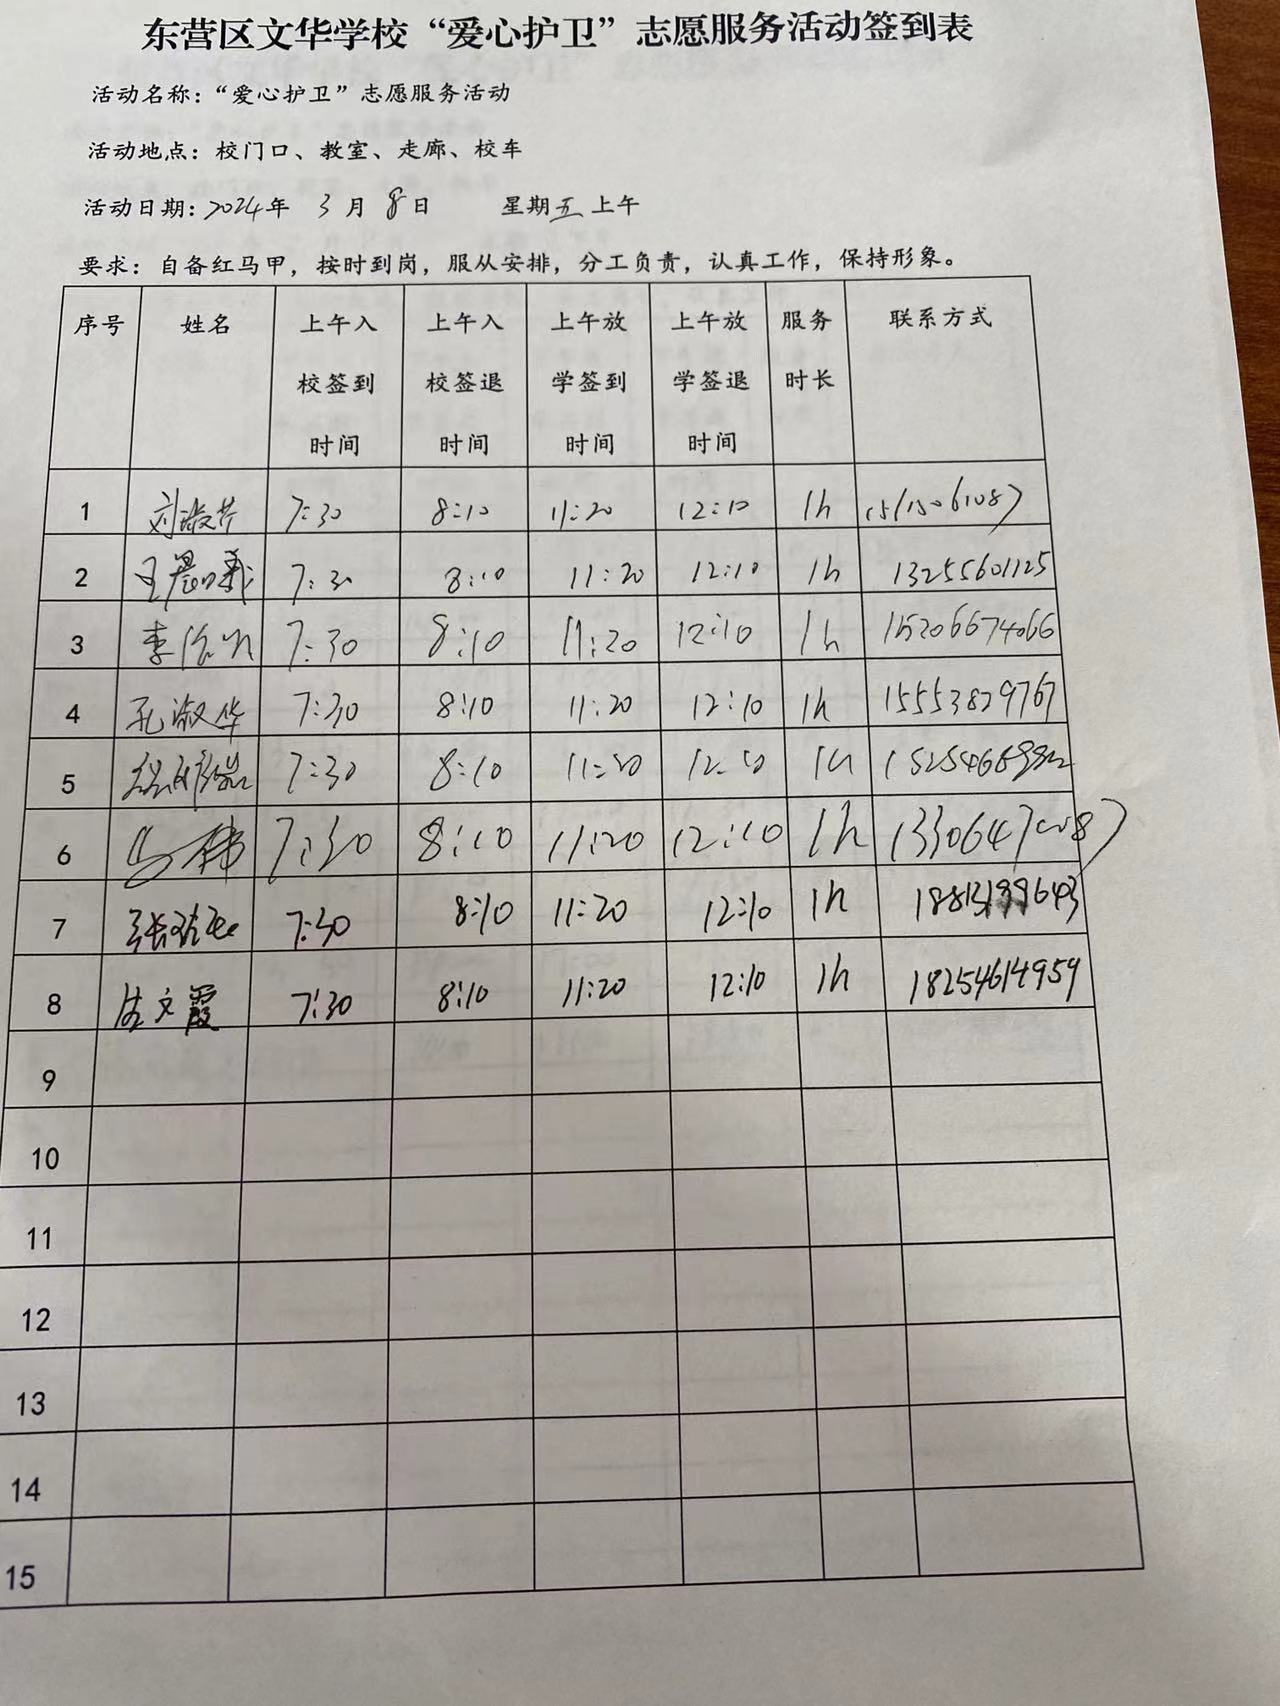 东营区文华学校“爱心护卫”志愿服务活动签到表
活动名称：“爱心护卫”志愿服务活动
活动地点：校门口、教室、走廊、校车
活动日期：2024年 3月8日 星期五上午
要求：自备红马甲，按时到岗，服从安排，分工负责，认真工作，保持形象。
序号 姓名 上午入校签到时间 上午入校签退时间 上午放学签到时间 上午放学签退时间 服务时长 联系方式
1 刘淑芹 7:30 8:10 11:20 12:10 1h
2 7:30 8:10 11:20 12:10 1h 13255601125
3 7:30 8:10 11:20 12:10 1h 15206674066
4 孔淑华 7:30 8:10 11:20 12:10 1h 15553829767
5 7:30 8:10 1h
6 7:30 8:10 11:20 12:10 1h
7 7:30 8:10 11:20 12:10 1h
8 文霞 7:30 8:10 11:20 12:10 1h 18254614959
9
10
11
12
13
14
15